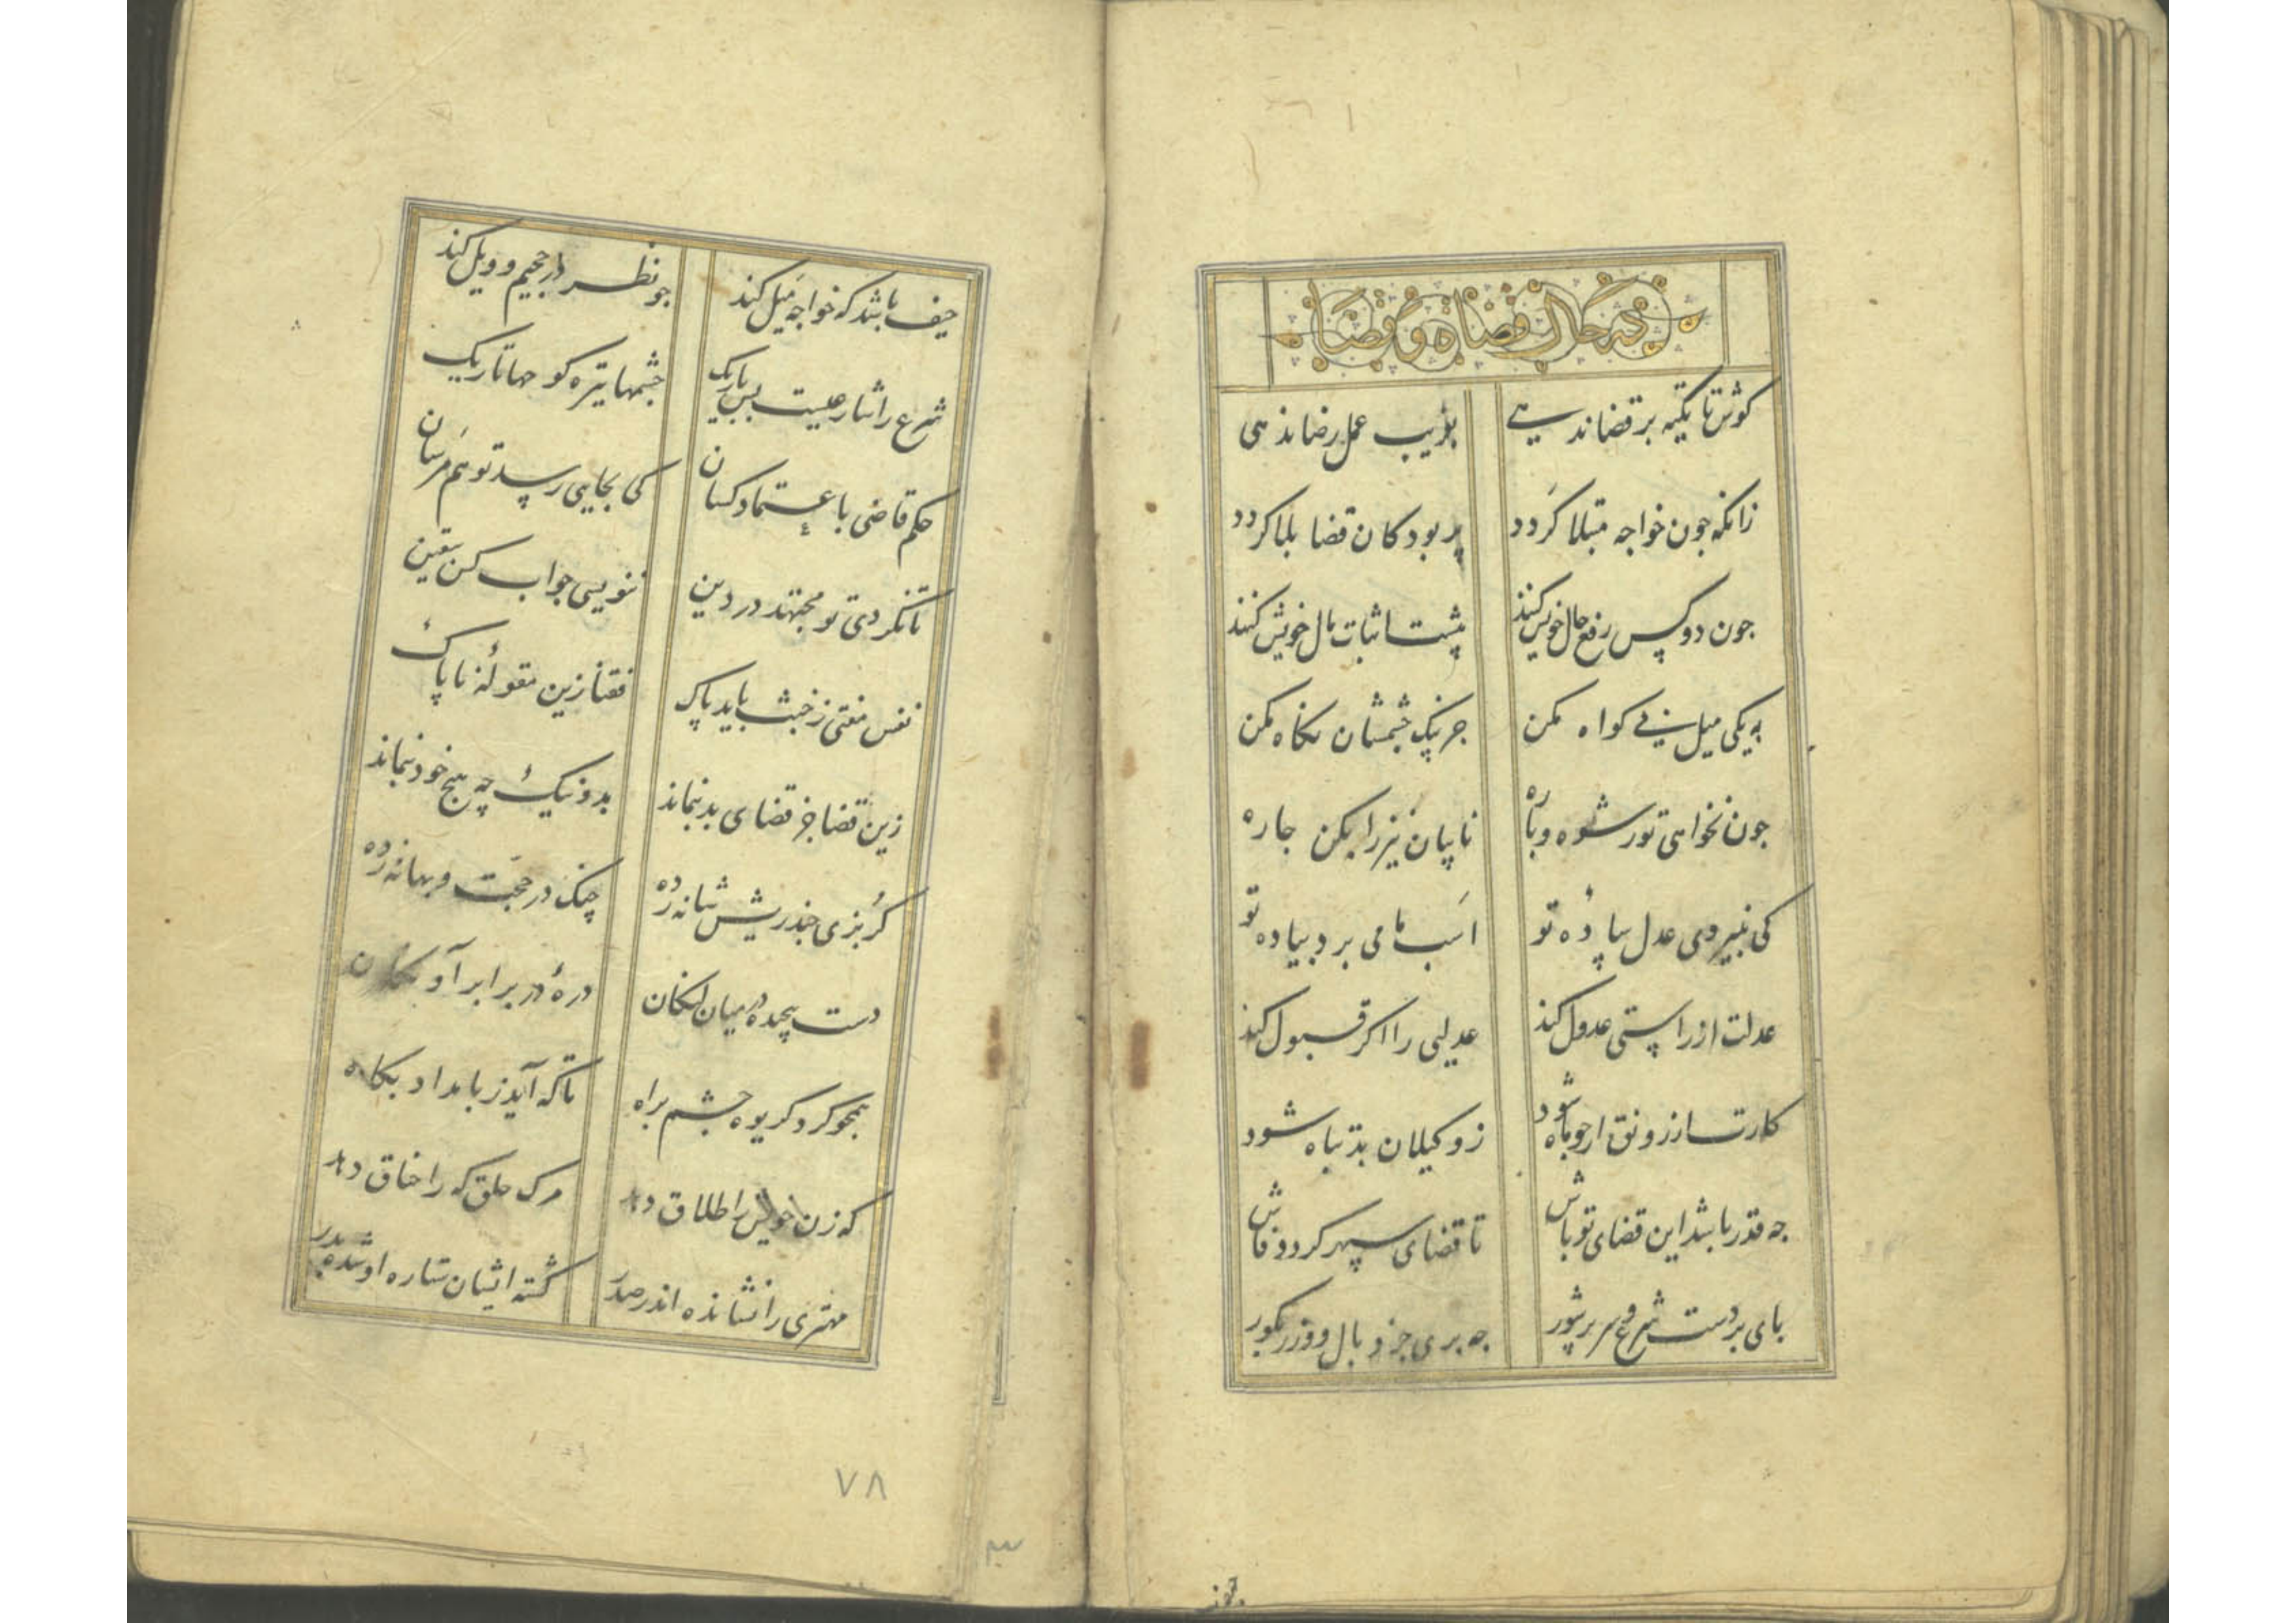 در حال قضاة و قضا
کوش تا تکیه بر قضا ندهی
بفریب عمل رضا ندهی
زانکه جون خواجه مبتلا کردد
پر بود کان قضا بلا کردد
جون دو کس رفع حال خویش کنند
پیشت اثبات مال خویش کنند
به یکی میل بی کواه مکن
جز بیک چشمشان نکاه مکن
جون نخواهی تو رشوه و پاره
نایبان نیز را بکن جاره
کی نبیره‌ی عدل ساده تو
اسب ما می برد پیاده تو
عدلت از راستی عدول کند
عدلیی را اکر قبول کند
کارت ار زونق ار جو ماه شود
ز وکیلان بد تباه شود
جه قدر باشد این قضای تو باش
تا قضای سپهر کردد فاش
بای بر دست شرع و سر پر شور
جه بری جز وبال و وزر بکور
حیف باشد که خواجه میل کند
جو نظر در جحیم و ویل کند
شرع را شارعیست بس باریک
چشمها تیره کوجها تاریک
حکم قاضی با عتماد کسان
کی بجایی رسد تو هم مرسان
تا نکردی تو مجتهد در دین
ننویسی جواب کس بیقین
نفس مفتی ز خبث باید پاک
فقها زین مقوله‌ٔ ناپاک
زین قضا جز قضای بد نماند
بد و نیک چه هیچ خود نماند
کربزی جند ریش شانه زده
چنک در حجت و بهانه زده
دست پیچیده در میان لکان
دره‌ٔ در برابر آو
همجو کرد کریوه چشم براه
تا که آید ز بامداد بکاه
که زن خویش را طلاق دهد
مرک حلق که را خناق دهد
مهتری را نشانده اندر صدر
کشته ایشان ستاره او شده بدر
۷۸